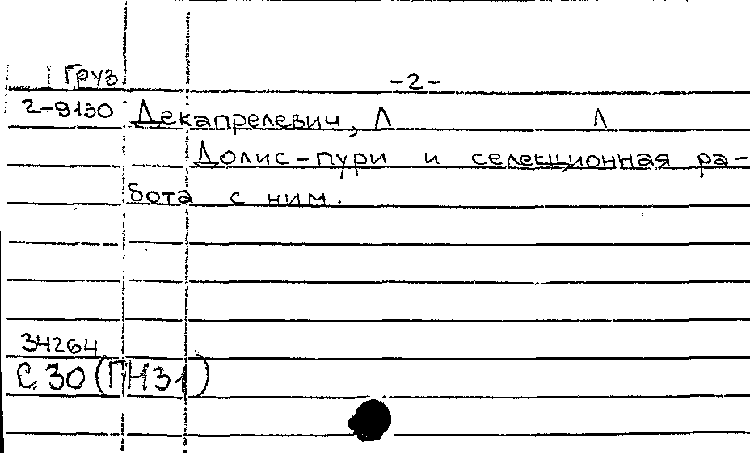 Груз -2-
2-9130 Декапрелевич, Л Л
Долис-пури и селекционная ра-
бота с ним.
34264
С 30 (ГНЗ1)